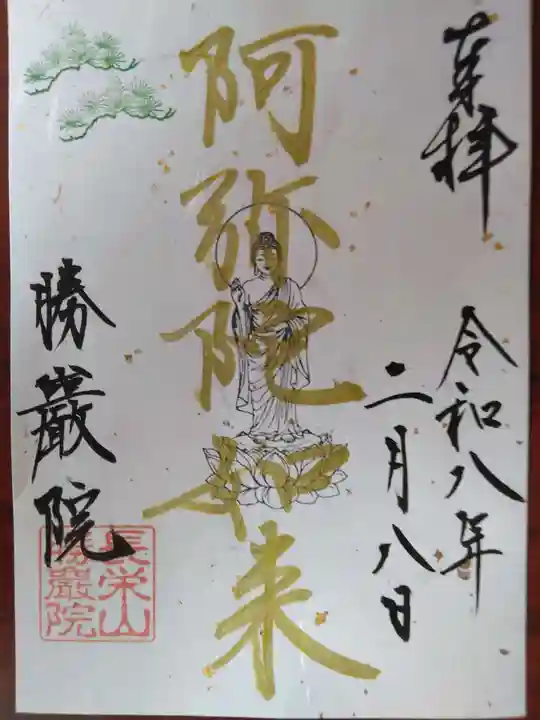 奉拝
令和八年
二月八日
阿弥陀如来
勝巌院
長栄山
勝巌院